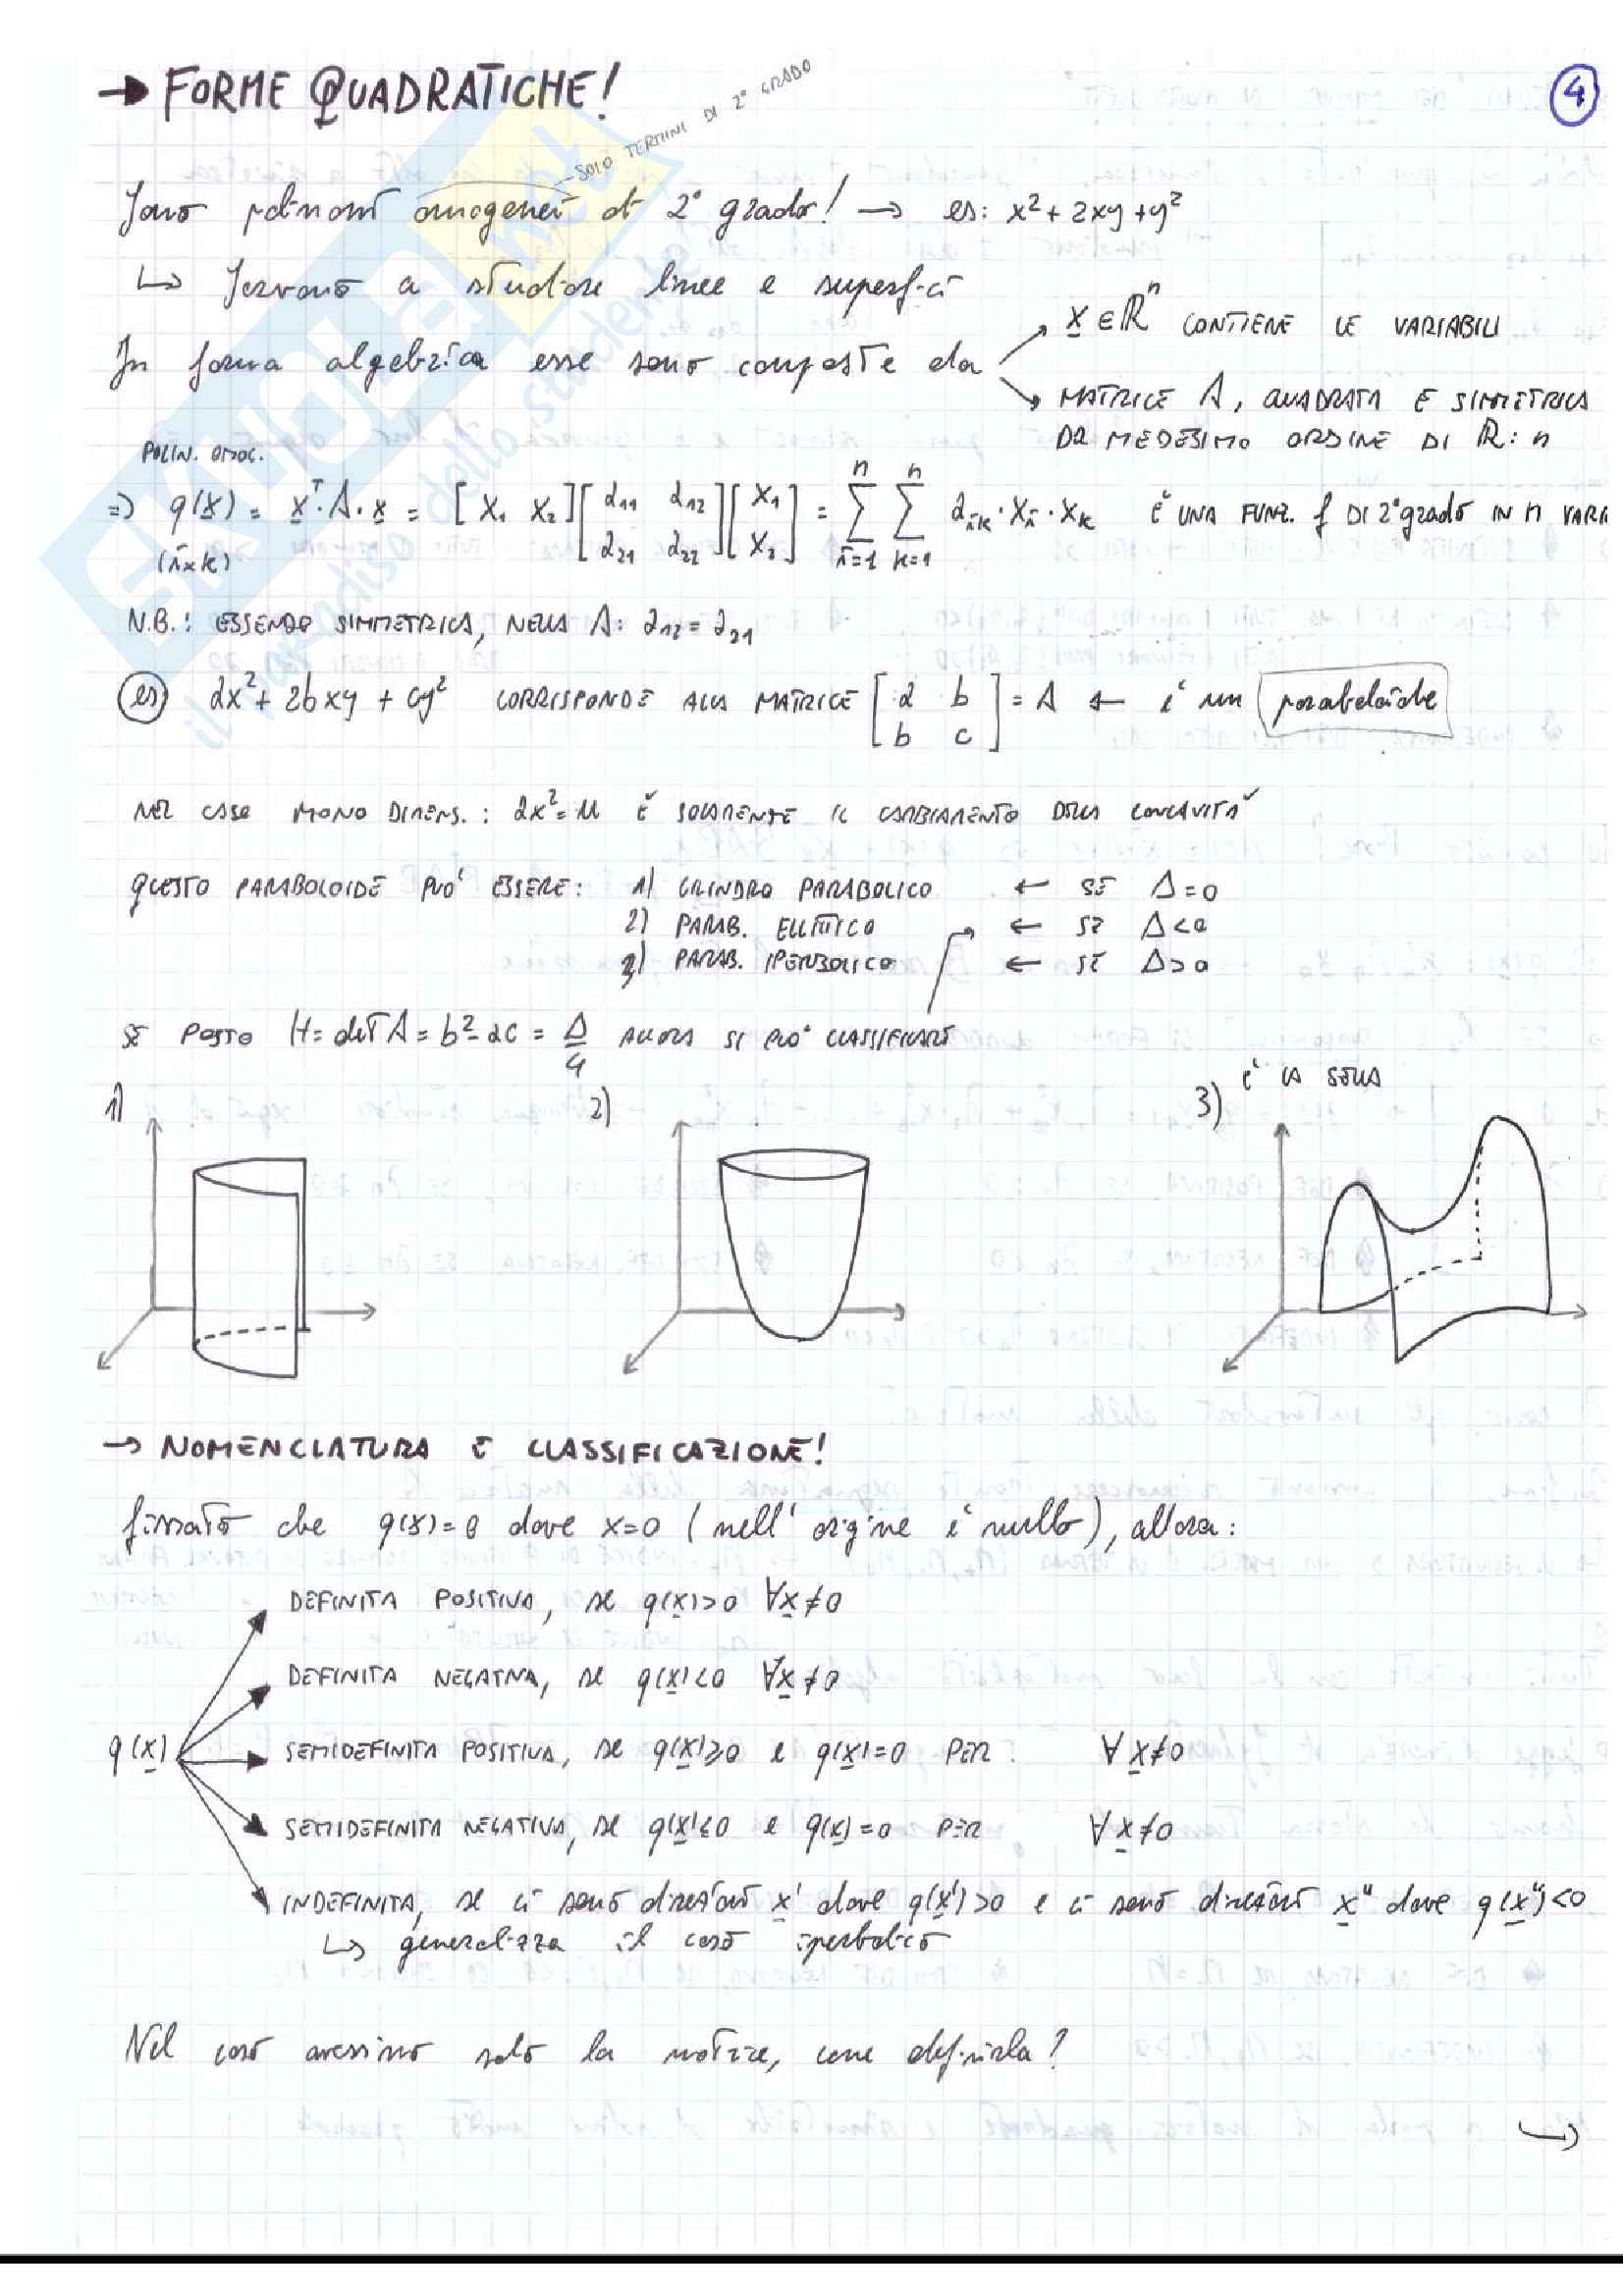 → FORME QUADRATICHE!
4
SOLO TERMINI DI 2° GRADO
Sono polinomi omogenei di 2° grado! → es: x² + 2xy + y²
↳ Servono a studiare linee e superfici
In forma algebrica esse sono composte da
x ∈ ℝⁿ CONTIENE LE VARIABILI
MATRICE A, QUADRATA E SIMMETRICA
DA MEDESIMO ORDINE DI ℝ: n
POLIN. OMOG.
=> q(x) = xᵀ·A·x = [x₁ x₂] [a₁₁ a₁₂ a₂₁ a₂₂] [x₁ x₂] = Σ i=1 n Σ k=1 n aᵢₖ·xᵢ·xₖ È UNA FUNZ. f DI 2° grado IN n VARI
(i×k)
N.B.: ESSENDO SIMMETRICA, NELLA A: a₁₂ = a₂₁
es) ax² + 2bxy + cy² CORRISPONDE ALLA MATRICE [a b b c] = A ← è un paraboloide
NEL CASO MONO DIMENS.: ax² = u È SOLAMENTE IL CAMBIAMENTO DELLA CONCAVITA'
QUESTO PARABOLOIDE PUO' ESSERE: 1) CILINDRO PARABOLICO ← SE Δ=0
2) PARAB. ELLITTICO ← SE Δ<0
3) PARAB. IPERBOLICO ← SE Δ>0
SE POSTO H = det A = b² - ac = Δ/4 ALLORA SI PUO' CLASSIFICARE
1)
2)
3) È LA SELLA
→ NOMENCLATURA E CLASSIFICAZIONE!
fissato che q(x)=0 dove x=0 (nell'origine è nullo), allora:
DEFINITA POSITIVA, se q(x)>0 ∀x≠0
DEFINITA NEGATIVA, se q(x)<0 ∀x≠0
q(x)
SEMIDEFINITA POSITIVA, se q(x)≥0 e q(x)=0 PER ∀x≠0
SEMIDEFINITA NEGATIVA, se q(x)≤0 e q(x)=0 PER ∀x≠0
INDEFINITA, se ci sono direzioni x' dove q(x')>0 e ci sono direzioni x" dove q(x")<0
↳ generalizza il caso iperbolico
Nel caso avessimo solo la matrice, come definirla?
SKUOLA.net
il paradiso dello studente